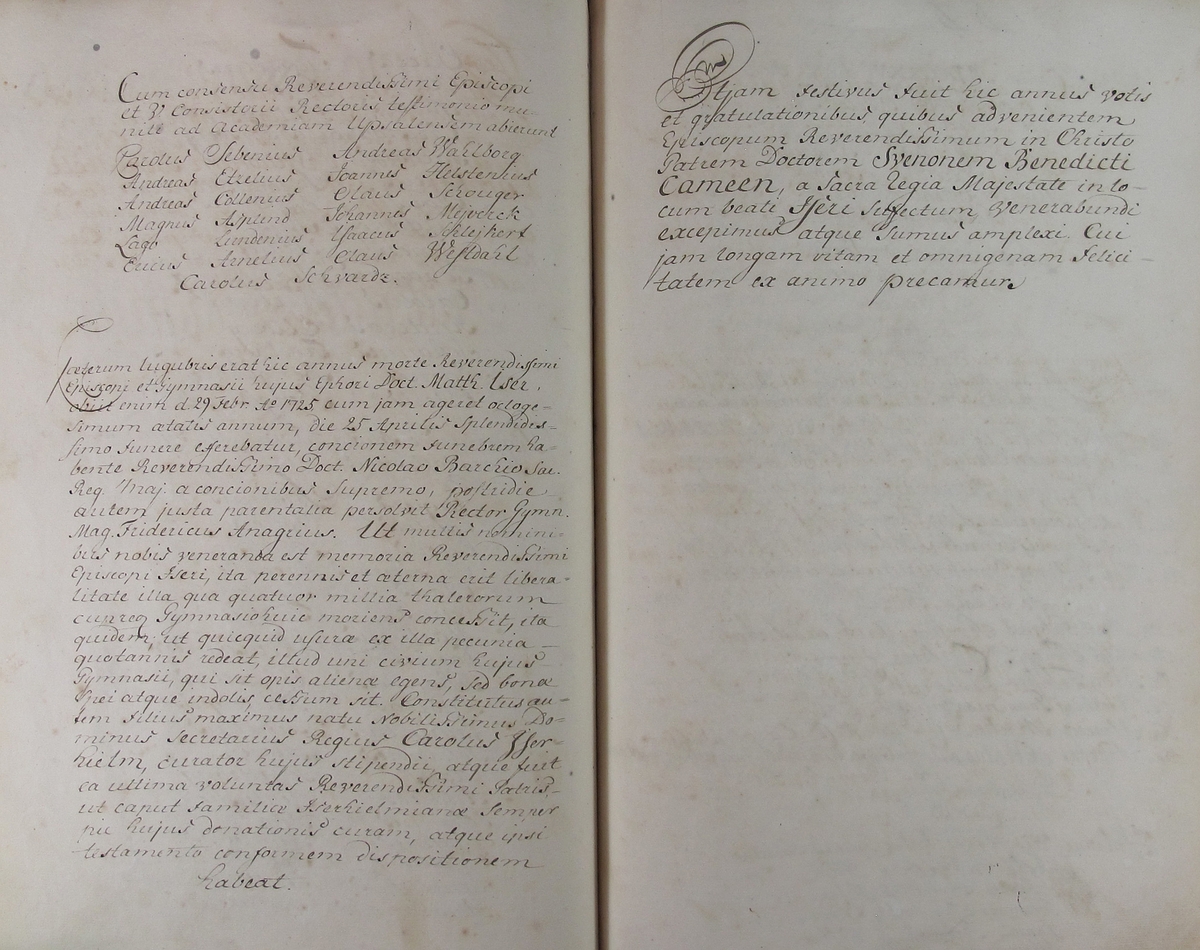 Cum consensu Reverendissimi Episcopi
et V Consistorii Rectoris testimonio mu-
niti ad Academiam Upsalensem abierunt
Carolus Sebenius Andreas Wahlborg
Andreas Etzelius Joannes Helstenius
Andreas Collenius Olaus Schuger
Magnus Asplind Johannes
Lago Lundenius Isaacus
Ericus Arnelius Olaus Westdahl
Carolus Schvardz.
Cæterum lugubris erat hic annus morte Reverendissimi
Episcopi et Gymnasii hujus Ephori Doct. Matth. Iser,
obiit enim d. 29 Febr. Ao 1725 cum jam ageret octoge-
simum ætatis annum, die 25 Aprilis splendidis-
simo funere efferebatur, concionem funebrem ha-
bente Reverendissimo Doct. Nicolao Barchio Sac.
Reg. Maj. a concionibus supremo, postridie
autem justa parentalia persolvit Rector Gymn.
Mag. Fridericus Anagrius. Ut multis nomini-
bus nobis veneranda est memoria Reverendissimi
Episcopi Iseri, ita perennis et æterna erit libera-
litate illa qua quatuor millia thalerorum
cupreo Gymnasio huic moriens concessit, ita
quidem, ut quicquid usuræ ex illa pecunia
quotannis redeat, illud uni civium hujus
Gymnasii, qui sit opis alienæ egens, sed bonæ
spei atque indolis, cessum sit. Constitutus au-
tem filius maximus natu Nobilissimus Do-
minus Secretarius Regius Carolus Iser-
hielm, curator hujus stipendii, atque fuit
ea ultima voluntas Reverendissimi Patris,
ut caput familiæ Iserhielmianæ semper
hujus donationis curam, atque ipsi
testamento conformem dispositionem
habeat.
Etjam festivus fuit hic annus votis
et gratulationibus, quibus advenientem
Episcopum Reverendissimum in Christo
Patrem Doctorem Svenonem Benedicti
Cameen, a Sacra Regia Majestate in lo-
cum beati Iseri suffectum, venerabundi
excepimus atque sumus amplexi. Cui
jam longam vitam et omnigenam felici-
tatem ex animo precamur.